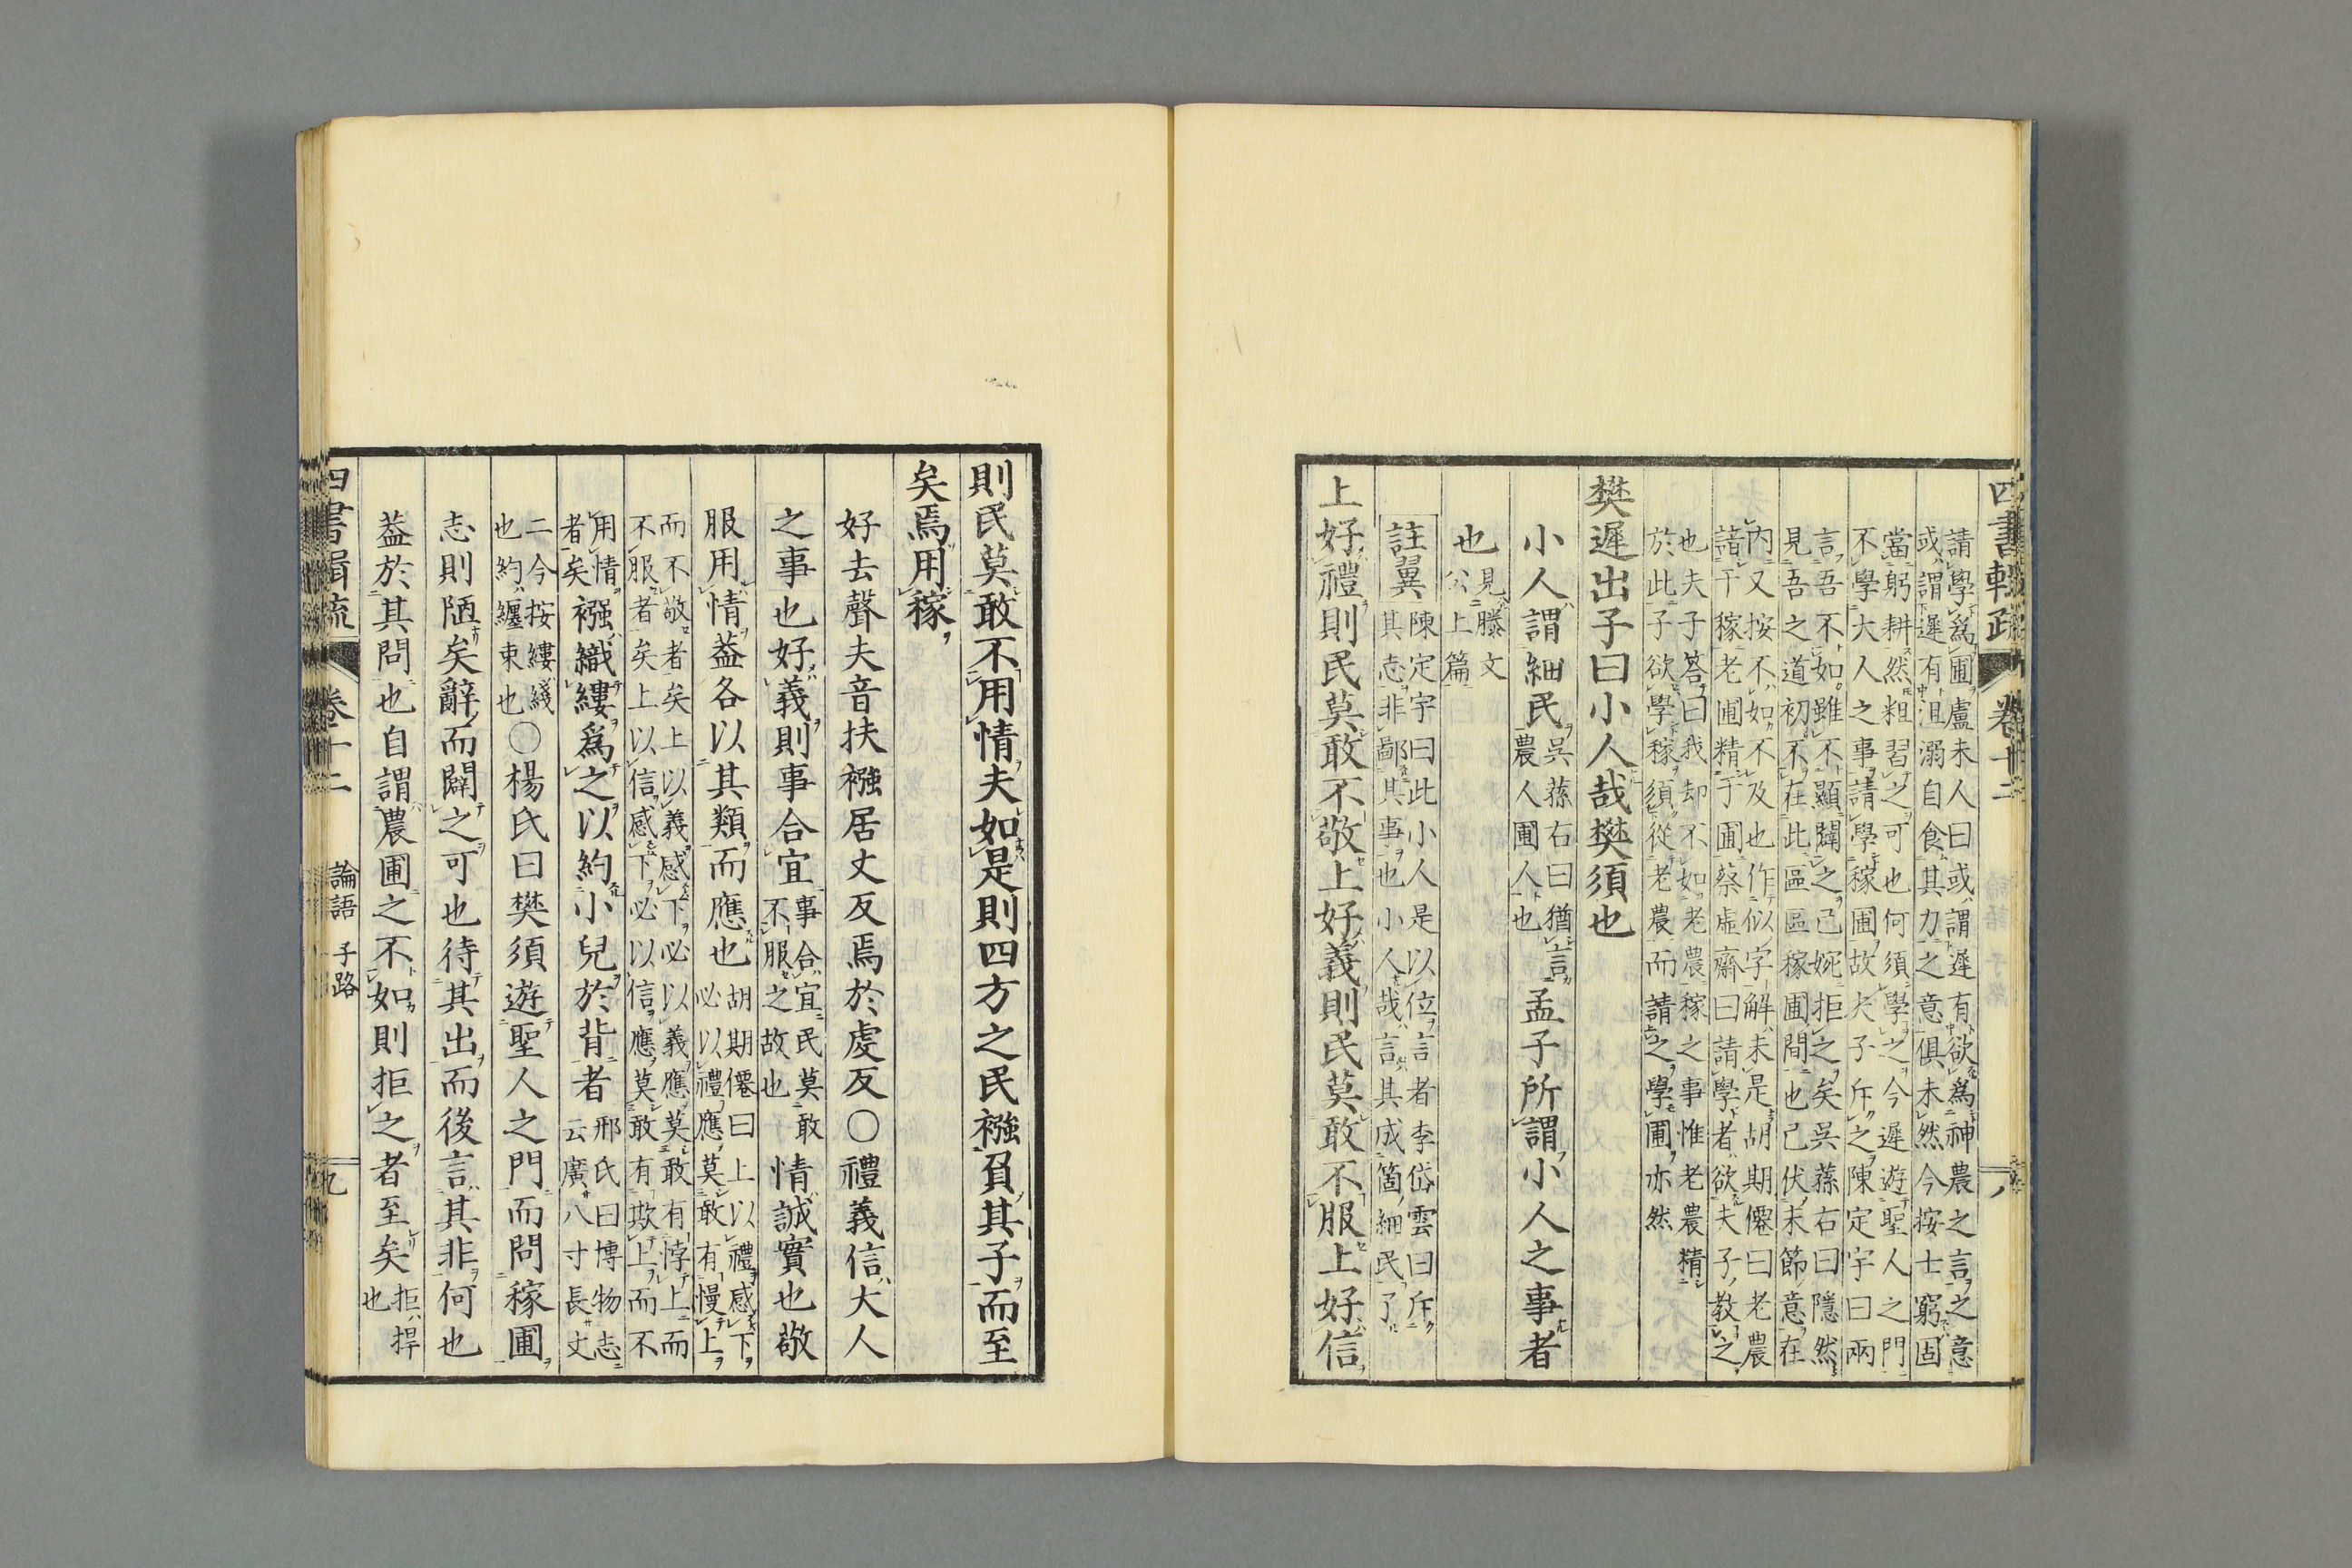 四書輯疏 卷十二
請學爲圃盧未人曰或謂遲有欲爲神農之言之意
或謂遲有沮溺自食其力之意俱未然今按士窮固
當躬耕然粗習之可也何須學之今遲遊聖人之門
不學大人之事請學稼圃故夫子斥之陳定宇曰兩
言吾不如雖不顯闢之已婉拒之矣吳蓀右曰隱然
見吾之道初不在此區區稼圃間也已伏末節意在
内又按不如不及也作似字解未是胡期僊曰老農
諳于稼老圃精于圃蔡虛齋曰請學者欲夫子教之
也夫子答曰我却不如老農稼之事惟老農精
於此子欲學稼須從老農而請之學圃亦然
樊遲出子曰小人哉樊須也
小人謂細民吳蓀右曰猶言農人圃人也孟子所謂小人之事者
也見滕文公上篇
註翼陳定宇曰此小人是以位言者李岱雲曰斥
其志非鄙其事也小人哉言其成箇細民了
上好禮則民莫敢不敬上好義則民莫敢不服上好信
則民莫敢不用情夫如是則四方之民襁負其子而至
矣焉用稼
好去聲夫音扶襁居丈反焉於虔反○禮義信大人
之事也好義則事合宜事合宜民莫敢不服之故也情誠實也敬
服用情葢各以其類而應也胡期僊曰上以禮感下必以禮應莫敢有慢上
而不敬者矣上以義感下必以義應莫敢有悖上而
不服者矣上以信感下必以信應莫敢有欺上而不
用情者矣襁織縷爲之以約小兒於背者邢氏曰博物志云廣八寸長丈
二今按縷綫也約纏束也○楊氏曰樊須遊聖人之門而問稼圃
志則陋矣辭而闢之可也待其出而後言其非何也
葢於其問也自謂農圃之不如則拒之者至矣拒捍也
四書輯疏 卷十二 論語 子路 九